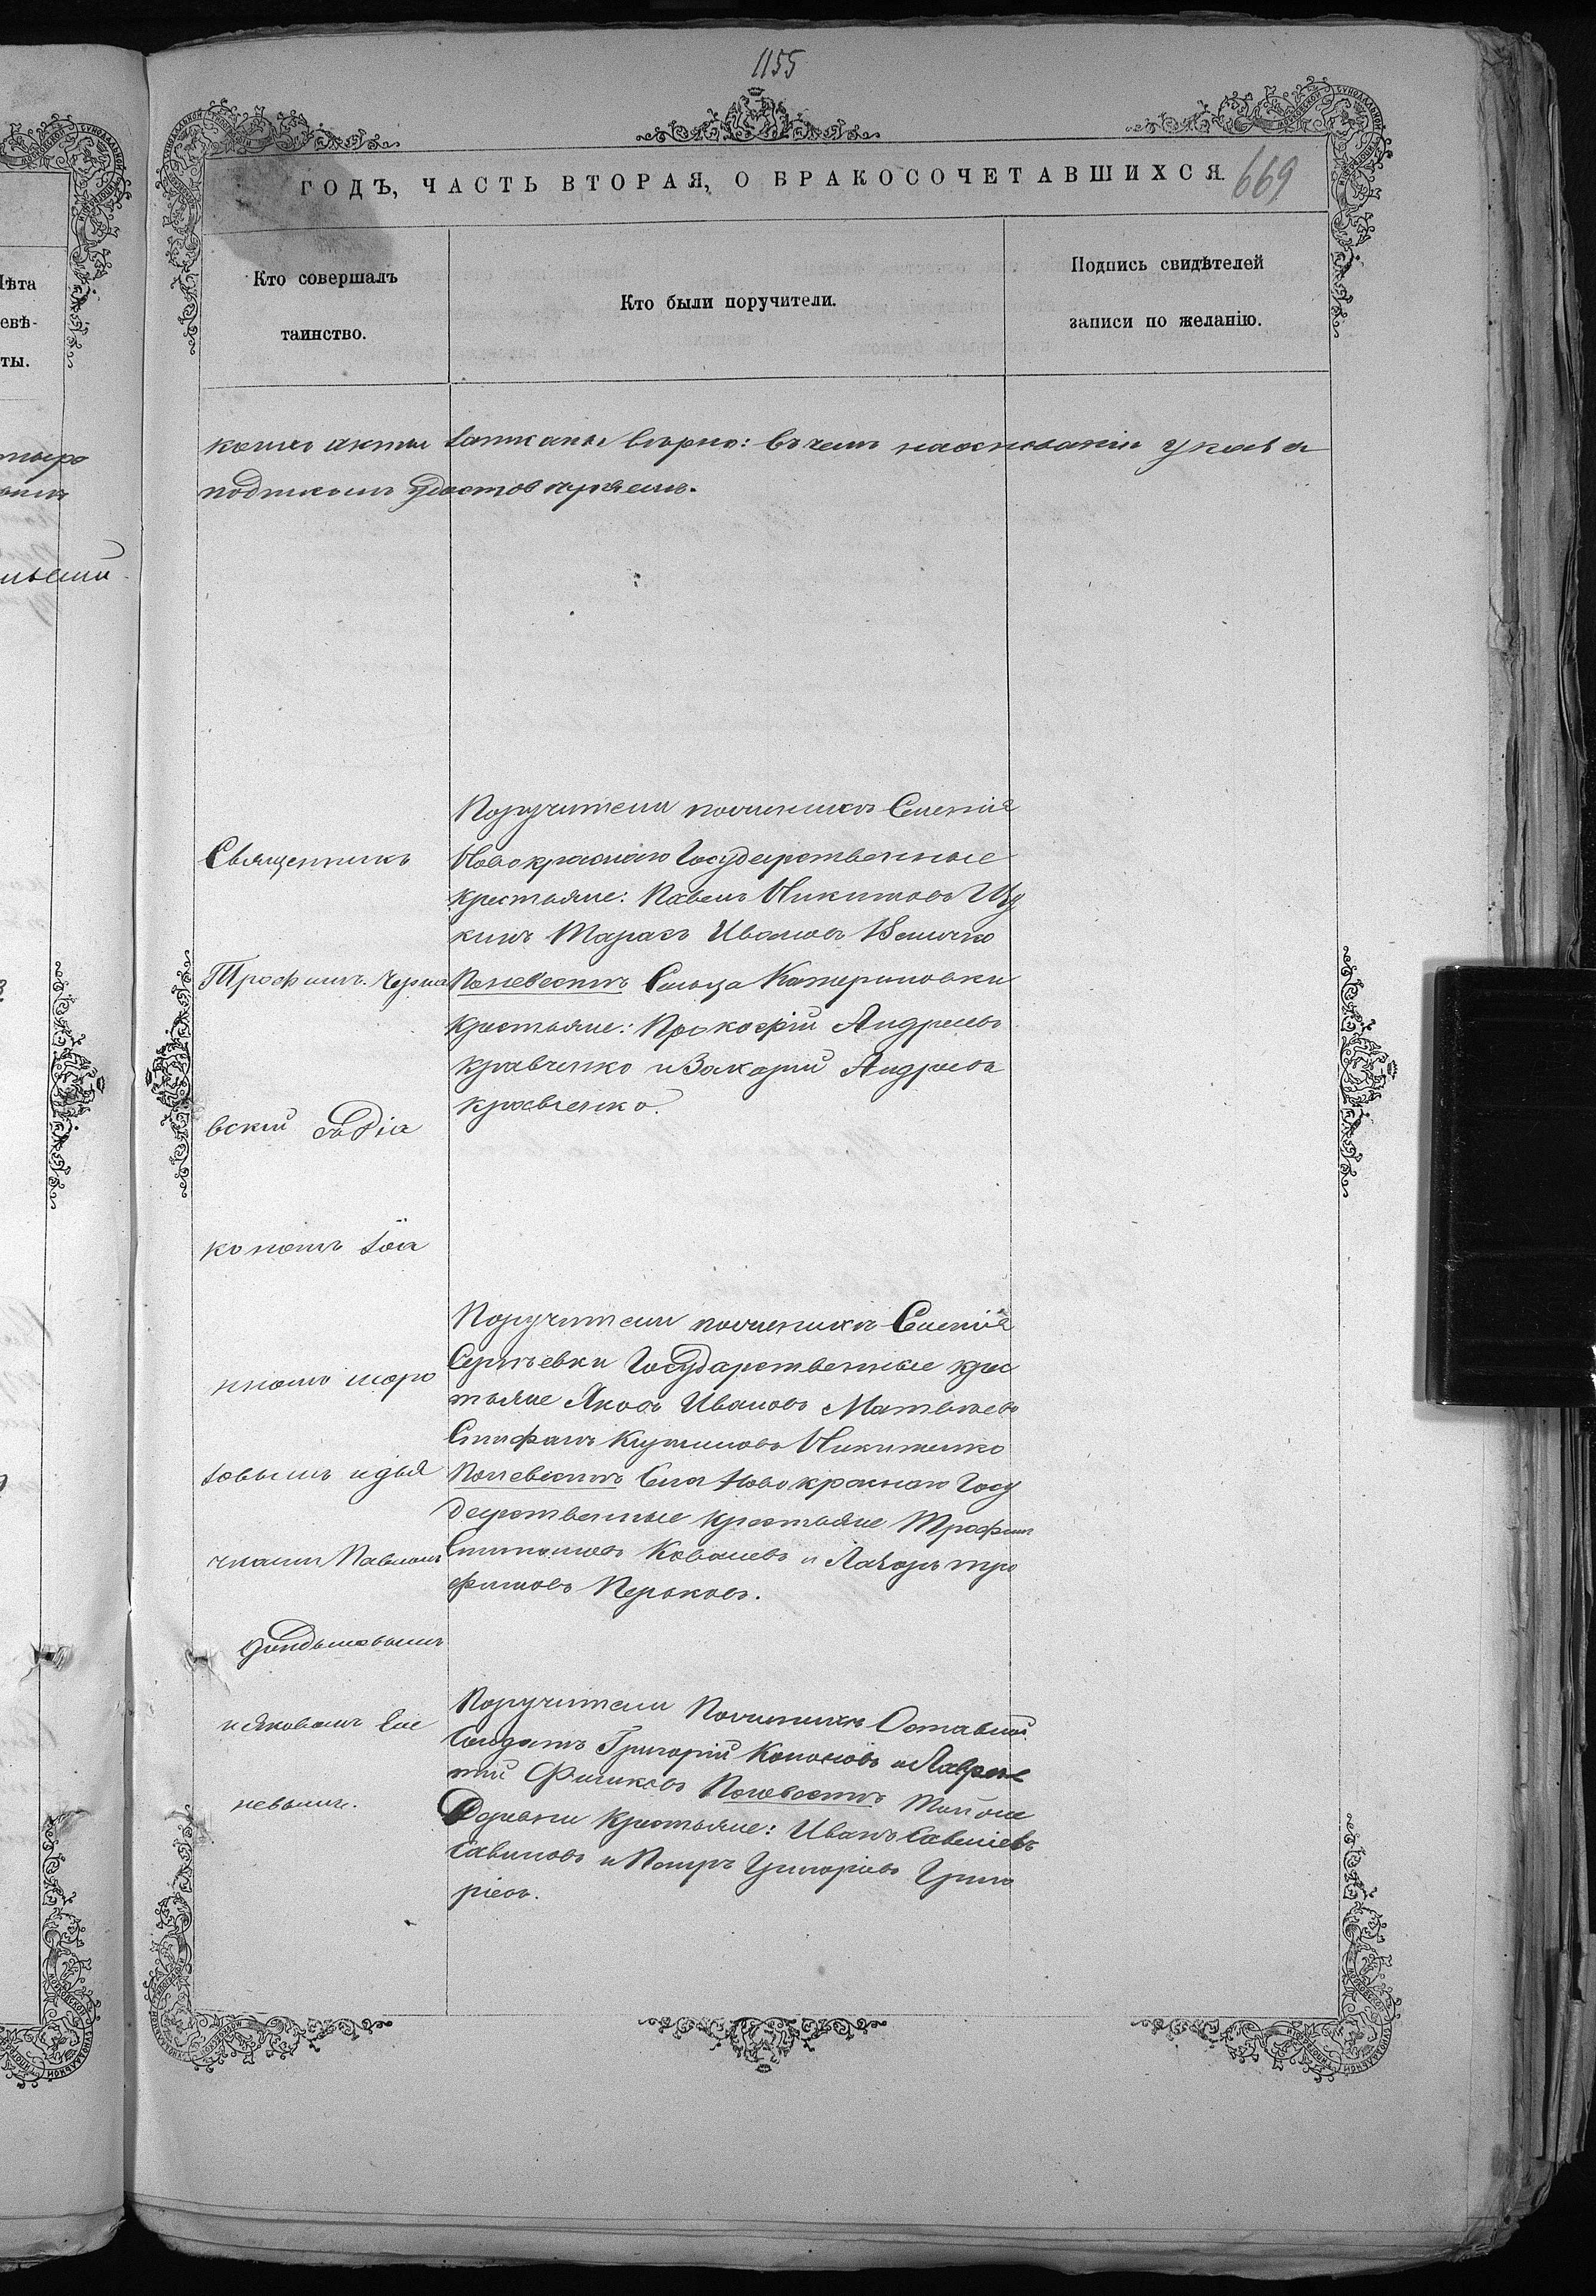 1155
ГОДЪ, ЧАСТЬ ВТОРАЯ, О БРАКОСОЧЕТАВШИХСЯ.
669
Кто совершалъ
таинство.
Кто были поручители.
Подпись свидѣтелей
записи по желанію.
акты записаны вѣрно: въ чемъ на основаніи указа
подписомъ удостовѣряемъ.
Священникъ
Трофимъ Черня
вскій съ Діа
кономъ Іоа
нномъ моро
зовымъ и дья
чками Павломъ
и Яковомъ Ене
невымъ.
Поручители по женихѣ Селенія
Новокраснаго Государственные
крестьяне: Павелъ Никитовъ
Тарасъ Ивановъ Величко
По невестѣ Сельца Катериновки
крестьяне: Прокофій Андреевъ
Кравченко и Захарій Андреевъ
Кравченко.
Поручители по женихѣ Селенія
Сергѣевки Государственные крес
тьяне Яковъ Ивановъ Матвѣевъ
Стефанъ Никитенко
По невестѣ Села Новокраснаго Госу
дарственные крестьяне Трофимъ
Ковалевъ и Лазарь Тро
фимовъ Перьковъ.
Поручители По женихѣ Отставной
Солдатъ Григорій Кононовъ и Лаврен
тій По невестѣ той же
Деревни Крестьяне: Иванъ Савеліевъ
Савиновъ и Петръ Григорьевъ Григо
ріевъ.
Лѣта
евѣ-
ты.